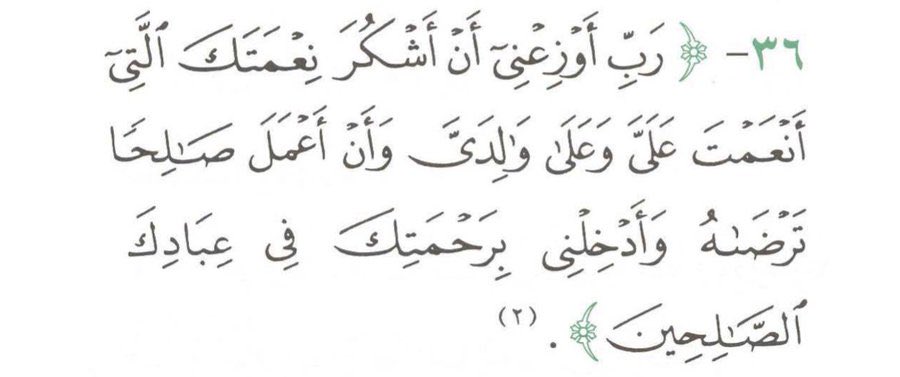 ٣٦- ﴿ رَبِّ أَوْزِعْنِىٓ أَنْ أَشْكُرَ نِعْمَتَكَ ٱلَّتِىٓ
أَنْعَمْتَ عَلَىَّ وَعَلَىٰ وَٰلِدَىَّ وَأَنْ أَعْمَلَ صَـٰلِحًا
تَرْضَىٰهُ وَأَدْخِلْنِى بِرَحْمَتِكَ فِى عِبَادِكَ
ٱلصَّـٰلِحِينَ ﴾ . (٢)